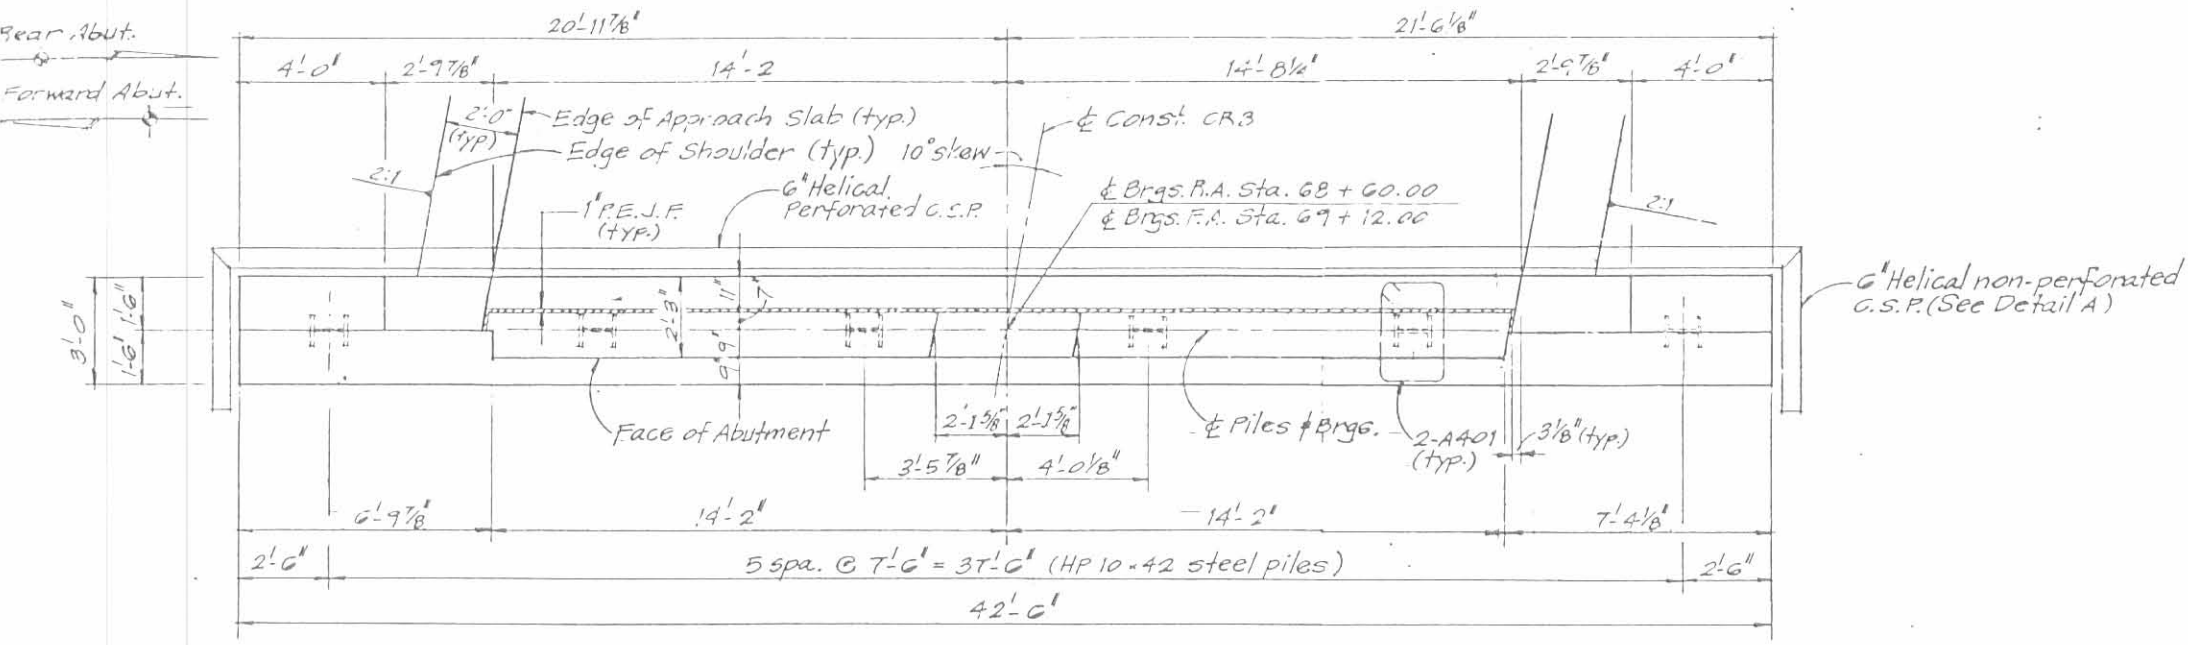 Rear Abut.
Forward Abut.
20'-11 7/8"
21'-6 1/8"
4'-0"
2'-9 7/8"
14'-2
14'-8 1/4"
2'-9 7/8"
4'-0"
2'-0"
(typ)
Edge of Approach Slab (typ.)
Edge of Shoulder (typ.)
10° skew
℄ Const. CR3
2:1
2:1
1" P.E.J.F.
(typ.)
6" Helical
Perforated C.S.P.
℄ Brgs. R.A. Sta. 68 + 60.00
℄ Brgs. F.A. Sta. 69 + 12.00
6" Helical non-perforated
C.S.P. (See Detail A)
3'-0"
1'-6"
1'-6"
2'-3"
11"
7"
9"
9"
Face of Abutment
2'-1 5/8"
2'-1 5/8"
℄ Piles & Brgs.
2-A401
(typ.)
3 1/8" (typ.)
3'-5 7/8"
4'-0 1/8"
6'-9 7/8"
14'-2"
14'-2"
7'-4 1/8"
2'-6"
5 spa. @ 7'-6" = 37'-6" (HP 10 x 42 steel piles)
2'-6"
42'-6"